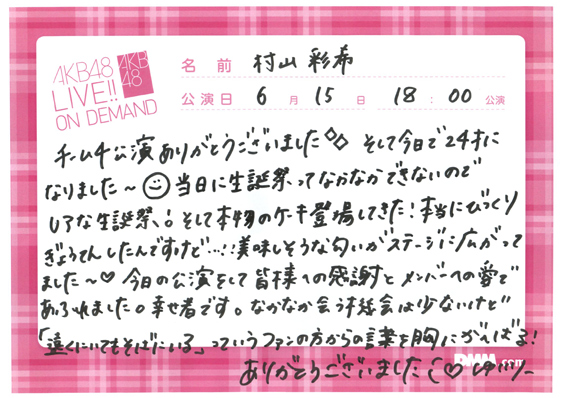 AKB48
LIVE!!
ON DEMAND
AKB
48
名前 村山彩希
公演日 6月15日 18:00公演
チーム4公演ありがとうございました◇◇ そして今日で24才に
なりました〜☺当日に生誕祭ってなかなかできないので
レアな生誕祭、!そして本物のケーキ登場してきた!本当にびっくり
ぎょうてんしたんですけど…!!美味しそうな匂いがステージに広がって
ました〜♡ 今日の公演そして皆様への感謝とメンバーへの愛で
あふれました。幸せ者です。なかなか会う機会は少ないけど
「遠くにいてもそばにいる」っていうファンの方からの言葉を胸にがんばる!
ありがとうございました
DMM.com